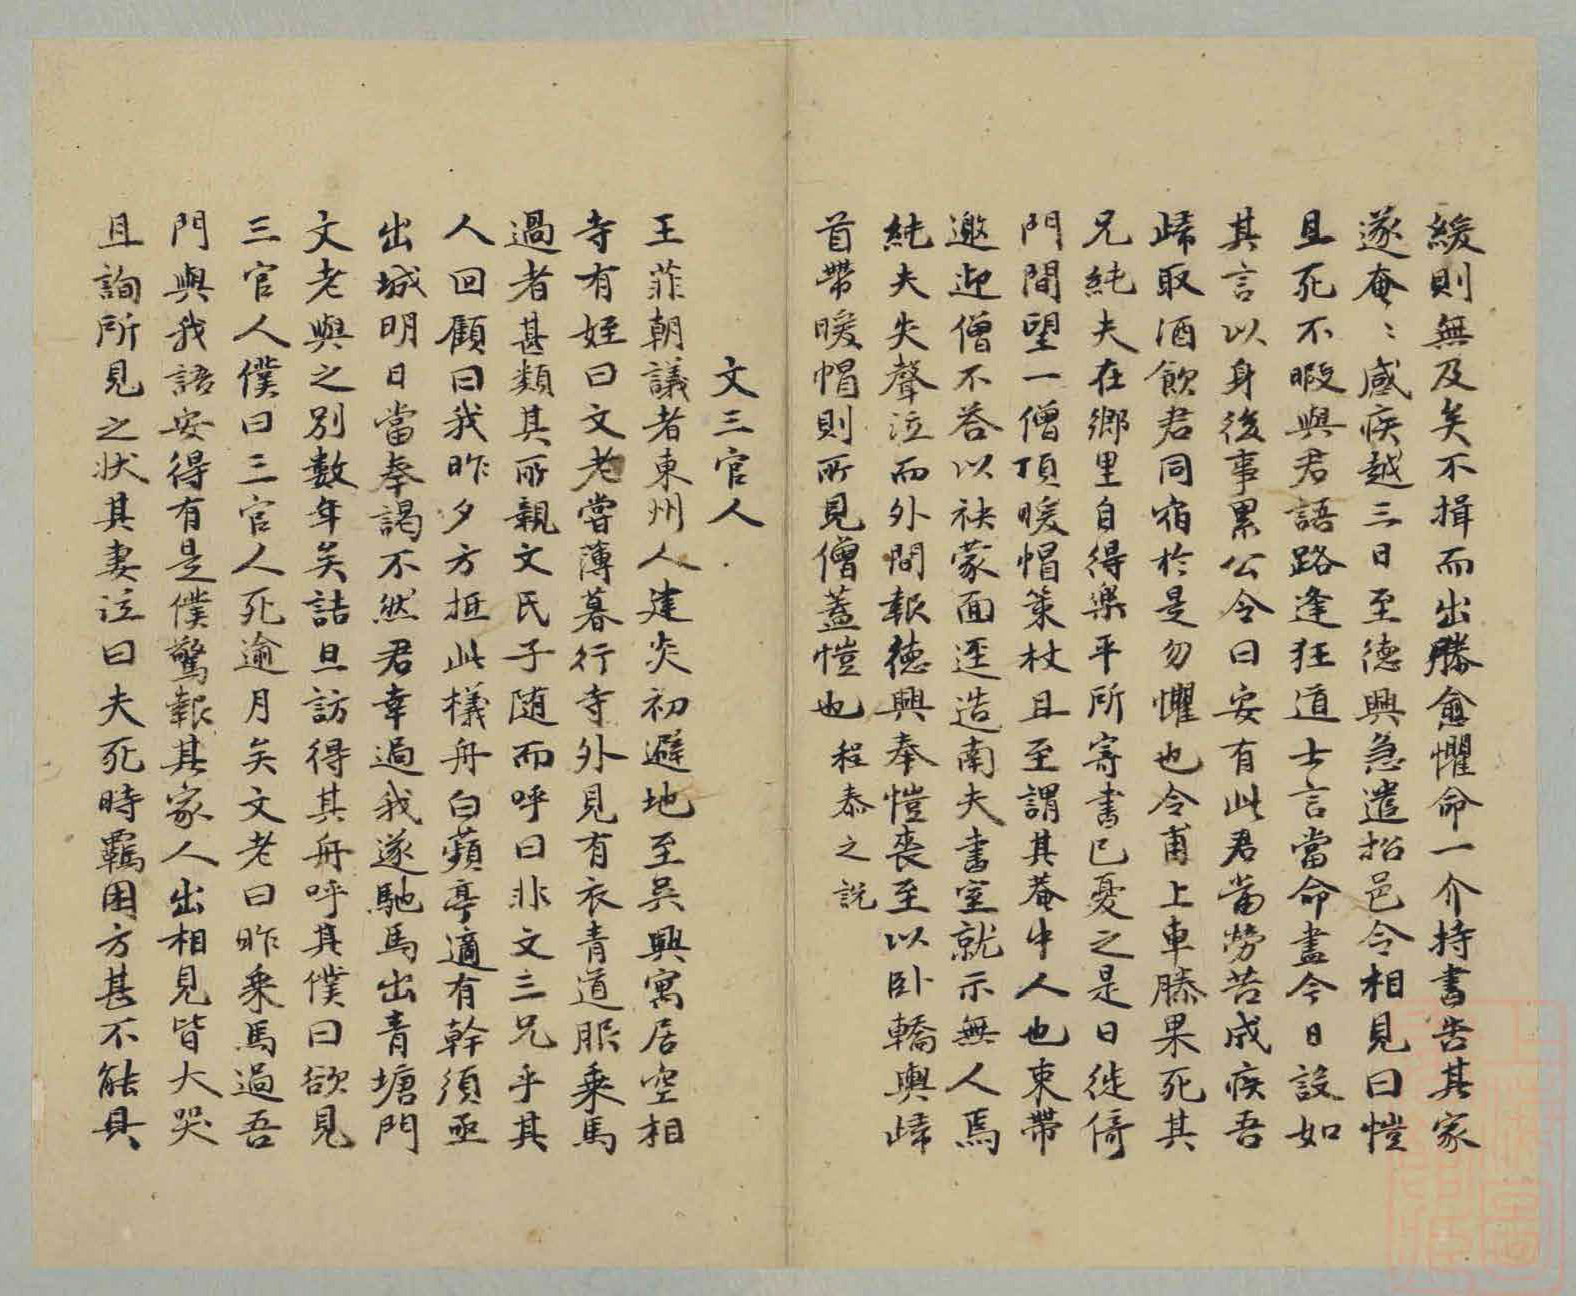 緩則無及矣不揖而出勝愈懼命一介持書告其家
遂奄〻感疾越三日至德興急遣招邑令相見曰愷
且死不暇與君語路逢狂道士言當命盡今日設如
其言以身後事累公令曰安有此君當勞苦成疾吾
歸取酒飲君同宿於是勿懼也令甫上車滕果死其
兄純夫在鄉里自得樂平所寄書已憂之是日徙倚
門間望一僧頂暖帽策杖且至謂其菴中人也束帶
邀迎僧不荅以袂蒙面逕造南夫書室就示無人焉
純夫失聲泣而外間報德興奉愷喪至以臥轎輿歸
首帶暖帽則所見僧蓋愷也程泰之說
文三官人
王菲朝議者東州人建炎初避地至吳興寓居空相
寺有姪曰文老嘗薄暮行寺外見有衣青道服乘馬
過者甚類其所親文氏子随而呼曰非文三兄乎其
人回顧曰我昨夕方抵此檥舟白蘋亭適有幹須亟
出城明日當奉謁不然君幸過我遂馳馬出青塘門
文老與之別數年矣詰旦訪得其舟呼其僕曰欲見
三官人僕曰三官人死逾月矣文老曰昨乘馬過吾
門與我語安得有是僕驚報其家人出相見皆大哭
且詢所見之狀其妻泣曰夫死時羈困方甚不能具